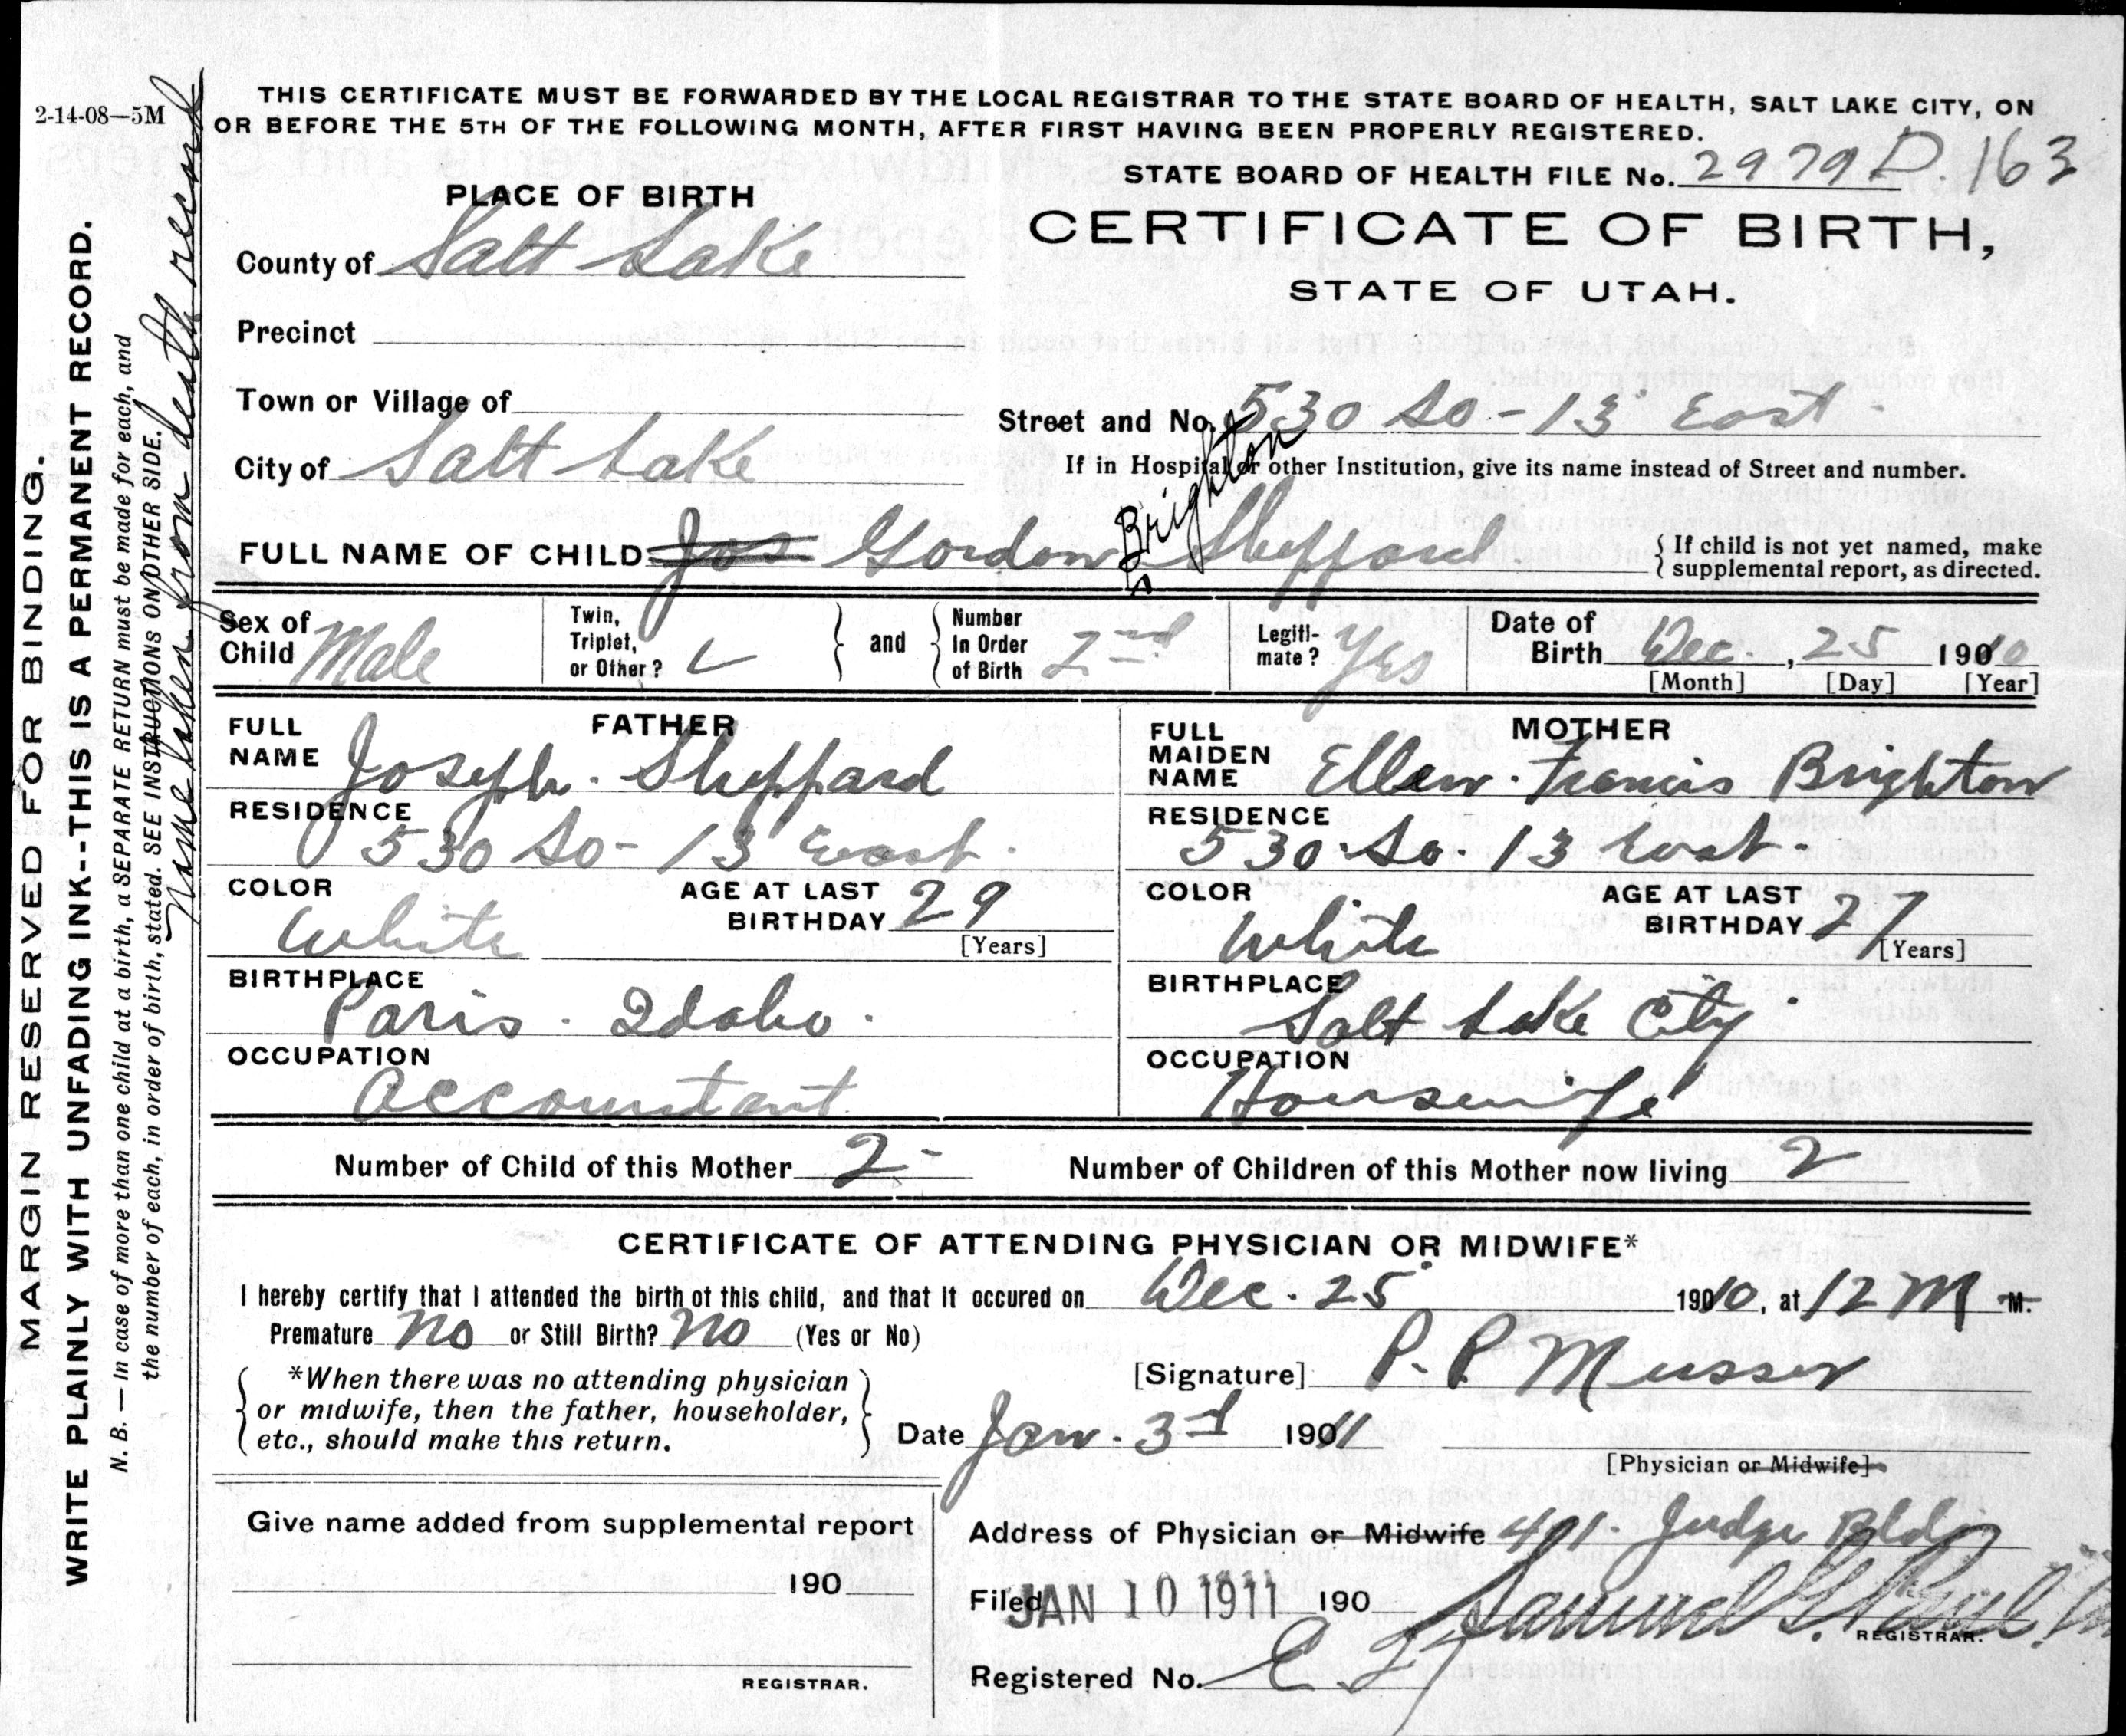 2-14-08—5M
THIS CERTIFICATE MUST BE FORWARDED BY THE LOCAL REGISTRAR TO THE STATE BOARD OF HEALTH, SALT LAKE CITY, ON
OR BEFORE THE 5TH OF THE FOLLOWING MONTH, AFTER FIRST HAVING BEEN PROPERLY REGISTERED.
STATE BOARD OF HEALTH FILE No. 2979 D. 163
PLACE OF BIRTH
CERTIFICATE OF BIRTH,
STATE OF UTAH.
County of Salt Lake
Precinct
Town or Village of
Street and No. 530 So - 13 East
City of Salt Lake
If in Hospital or other Institution, give its name instead of Street and number.
Brighton
FULL NAME OF CHILD Jos Gordon Sheppard
{ If child is not yet named, make
supplemental report, as directed.
Sex of Child Male
Twin, Triplet, or Other?
and
Number In Order of Birth 2nd
Legiti-mate? Yes
Date of Birth Dec. , 25 1910
[Month] [Day] [Year]
FATHER
FULL NAME Joseph. Sheppard
RESIDENCE
530 So - 13 East.
COLOR White
AGE AT LAST BIRTHDAY 29
[Years]
BIRTHPLACE
Paris. Idaho.
OCCUPATION
Accountant
MOTHER
FULL MAIDEN NAME Ellen. Francis Brighton
RESIDENCE
530. So. 13 East.
COLOR White
AGE AT LAST BIRTHDAY 27
[Years]
BIRTHPLACE
Salt Lake City.
OCCUPATION
Housewife
Number of Child of this Mother 2
Number of Children of this Mother now living 2
CERTIFICATE OF ATTENDING PHYSICIAN OR MIDWIFE*
I hereby certify that I attended the birth of this child, and that it occured on Dec. 25 1910, at 12 M M.
Premature No or Still Birth? No (Yes or No)
*When there was no attending physician
or midwife, then the father, householder,
etc., should make this return.
[Signature] P. P. Musser
Date Jan. 3d 1911
[Physician or Midwife]
Give name added from supplemental report
190
REGISTRAR.
Address of Physician or Midwife 401. Judge Bldg
Filed JAN 10 1911 190
Samuel G. Paul
REGISTRAR.
Registered No.
MARGIN RESERVED FOR BINDING.
WRITE PLAINLY WITH UNFADING INK--THIS IS A PERMANENT RECORD.
N. B. — In case of more than one child at a birth, a SEPARATE RETURN must be made for each, and
the number of each, in order of birth, stated. SEE INSTRUCTIONS ON OTHER SIDE.
Name taken from death record